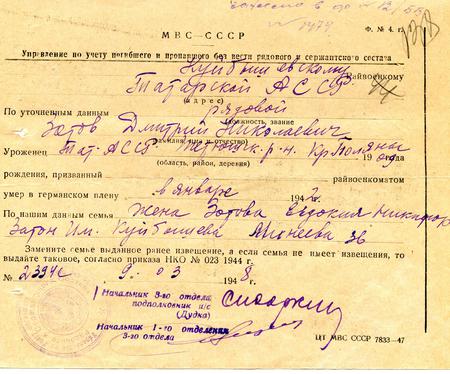 МВС–СССР
Ф. № 4. г.
Управление по учету погибшего и пропавшего без вести рядового и сержантского состава
Куйбышевскому райвоенкому
Татарской АССР
(адрес)
По уточненным данным рядовой
(должность, звание
Зотов Дмитрий Николаевич
фамилия, имя и отчество)
Уроженец Тат. АССР р.н. Кр. Поляны 19 года
(область, район, деревня)
рождения, призванный райвоенкоматом
умер в германском плену в январе 194
По нашим данным семья жена Зотова Евдокия
Затон им. Куйбышева 36
Замените семье выданное ранее извещение, а если семья не имеет извещения, то
выдайте таковое, согласно приказа НКО № 023 1944 г.
№ 9. 03 1948 г.
Начальник 3-го отдела
подполковник и/с
(Дудка)
Начальник 1-го отделения
3-го отдела
ЦТ МВС СССР 7833-47